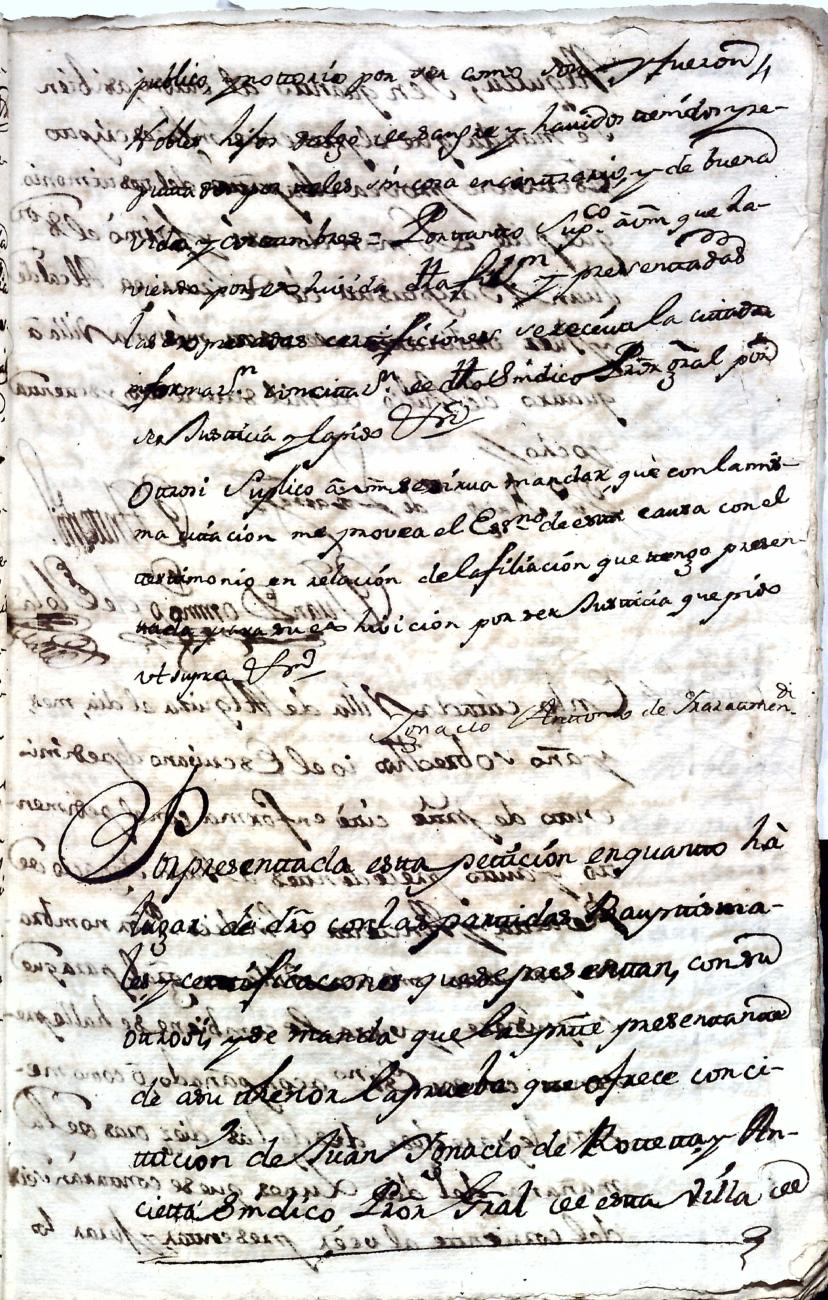 publico y nottorio por ser como son y fueron 4
Nobles hijos dalgo de sangre y hauidos tenidos y re-
puttados por tales sin cosa en contrario, y de buena
vida y costtumbres = Por tantto Sup.co â vm que ha-
viendo por exhivida dha filn. y presenttadas
las expresadas certtificaciones se reciva la cittada
informaz.n con citta.n de dho Sindico Pror gral por
ser Justticia y la pido &ra
Ottrosi Suplico â vm se sirua mandar que con la mis-
ma citación me provea el Essno. de estta causa con el
testtimonio en relación de la filiación que tengo presen-
ttada para su exhivición por ser Justticia que pido
vt supra &ra
Ignacio Anttonio de Yrazamendi
Por presenttada estta pettición en quantto hà
lugar de dro con las parttidas Bauptisma-
les y certtificaciones que se presenttan, con su
ottrosi, y se manda que la partte presenttante
dè a su thenor la prueba que ofrece con ci-
ttacion de Juan Ygnacio de Rottetta y An-
cietta Sindico Pror Gral de estta Villa de